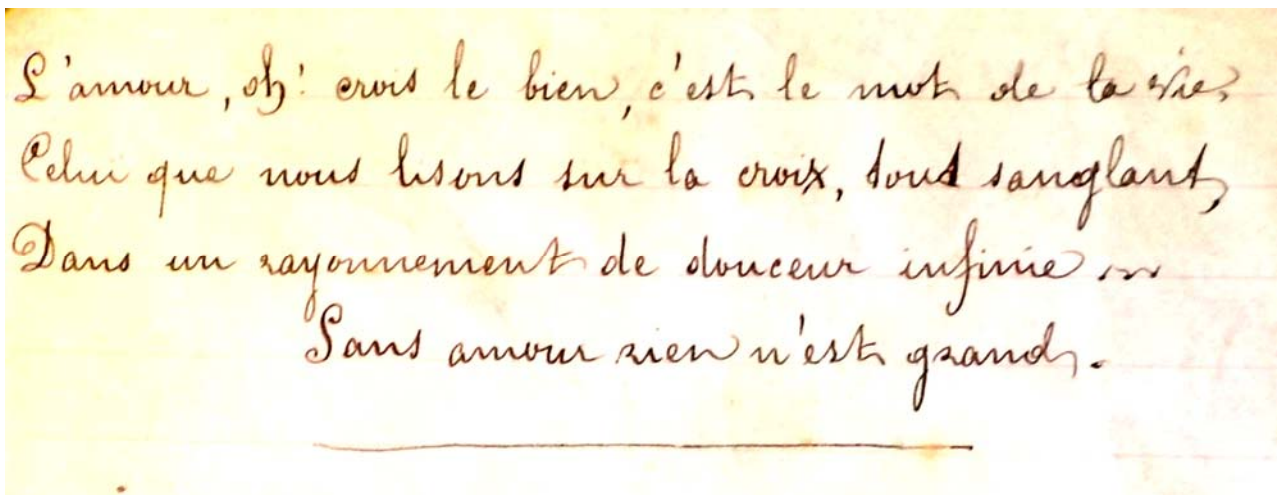 L'amour, oh! crois le bien, c'est le mot de la vie,
Celui que nous lisons sur la croix, tout sanglant,
Dans un rayonnement de douceur infinie ...
Sans amour rien n'est grand.